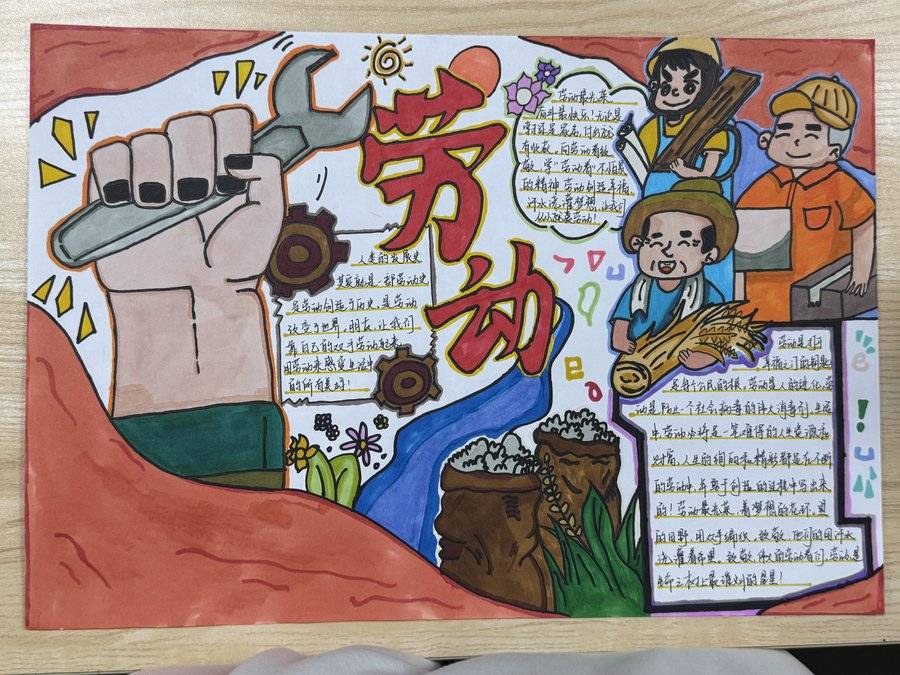 劳动
劳动最光荣
奋斗最快乐！无论是
有收获，向劳动者致
敬，学劳动者不怕艰
的精神，劳动创造幸福，
汗水浇灌梦想，让我们
从小热爱劳动！
人类的发展史
其实就是一部劳动史
是劳动创造了历史，是劳动
改变了世界，朋友，让我们
靠自己的双手劳动起来
用劳动来感受生活中
的所有美好！
劳动是打开
幸福之门的钥匙
是每个公民的根，劳动是人的进化，劳
动是防止一个社会病毒的伟大消毒剂，生活
中劳动必将是一笔难得的人生资源和
财富，人生的绚丽和精彩都是在不断
的劳动中，并勇于创造的过程中写出来
的！劳动最光荣，着梦想的花环，
的田野，用双手编织，致敬，他们的用汗水
浇灌着希望，致敬，伟大的劳动者们，劳动是